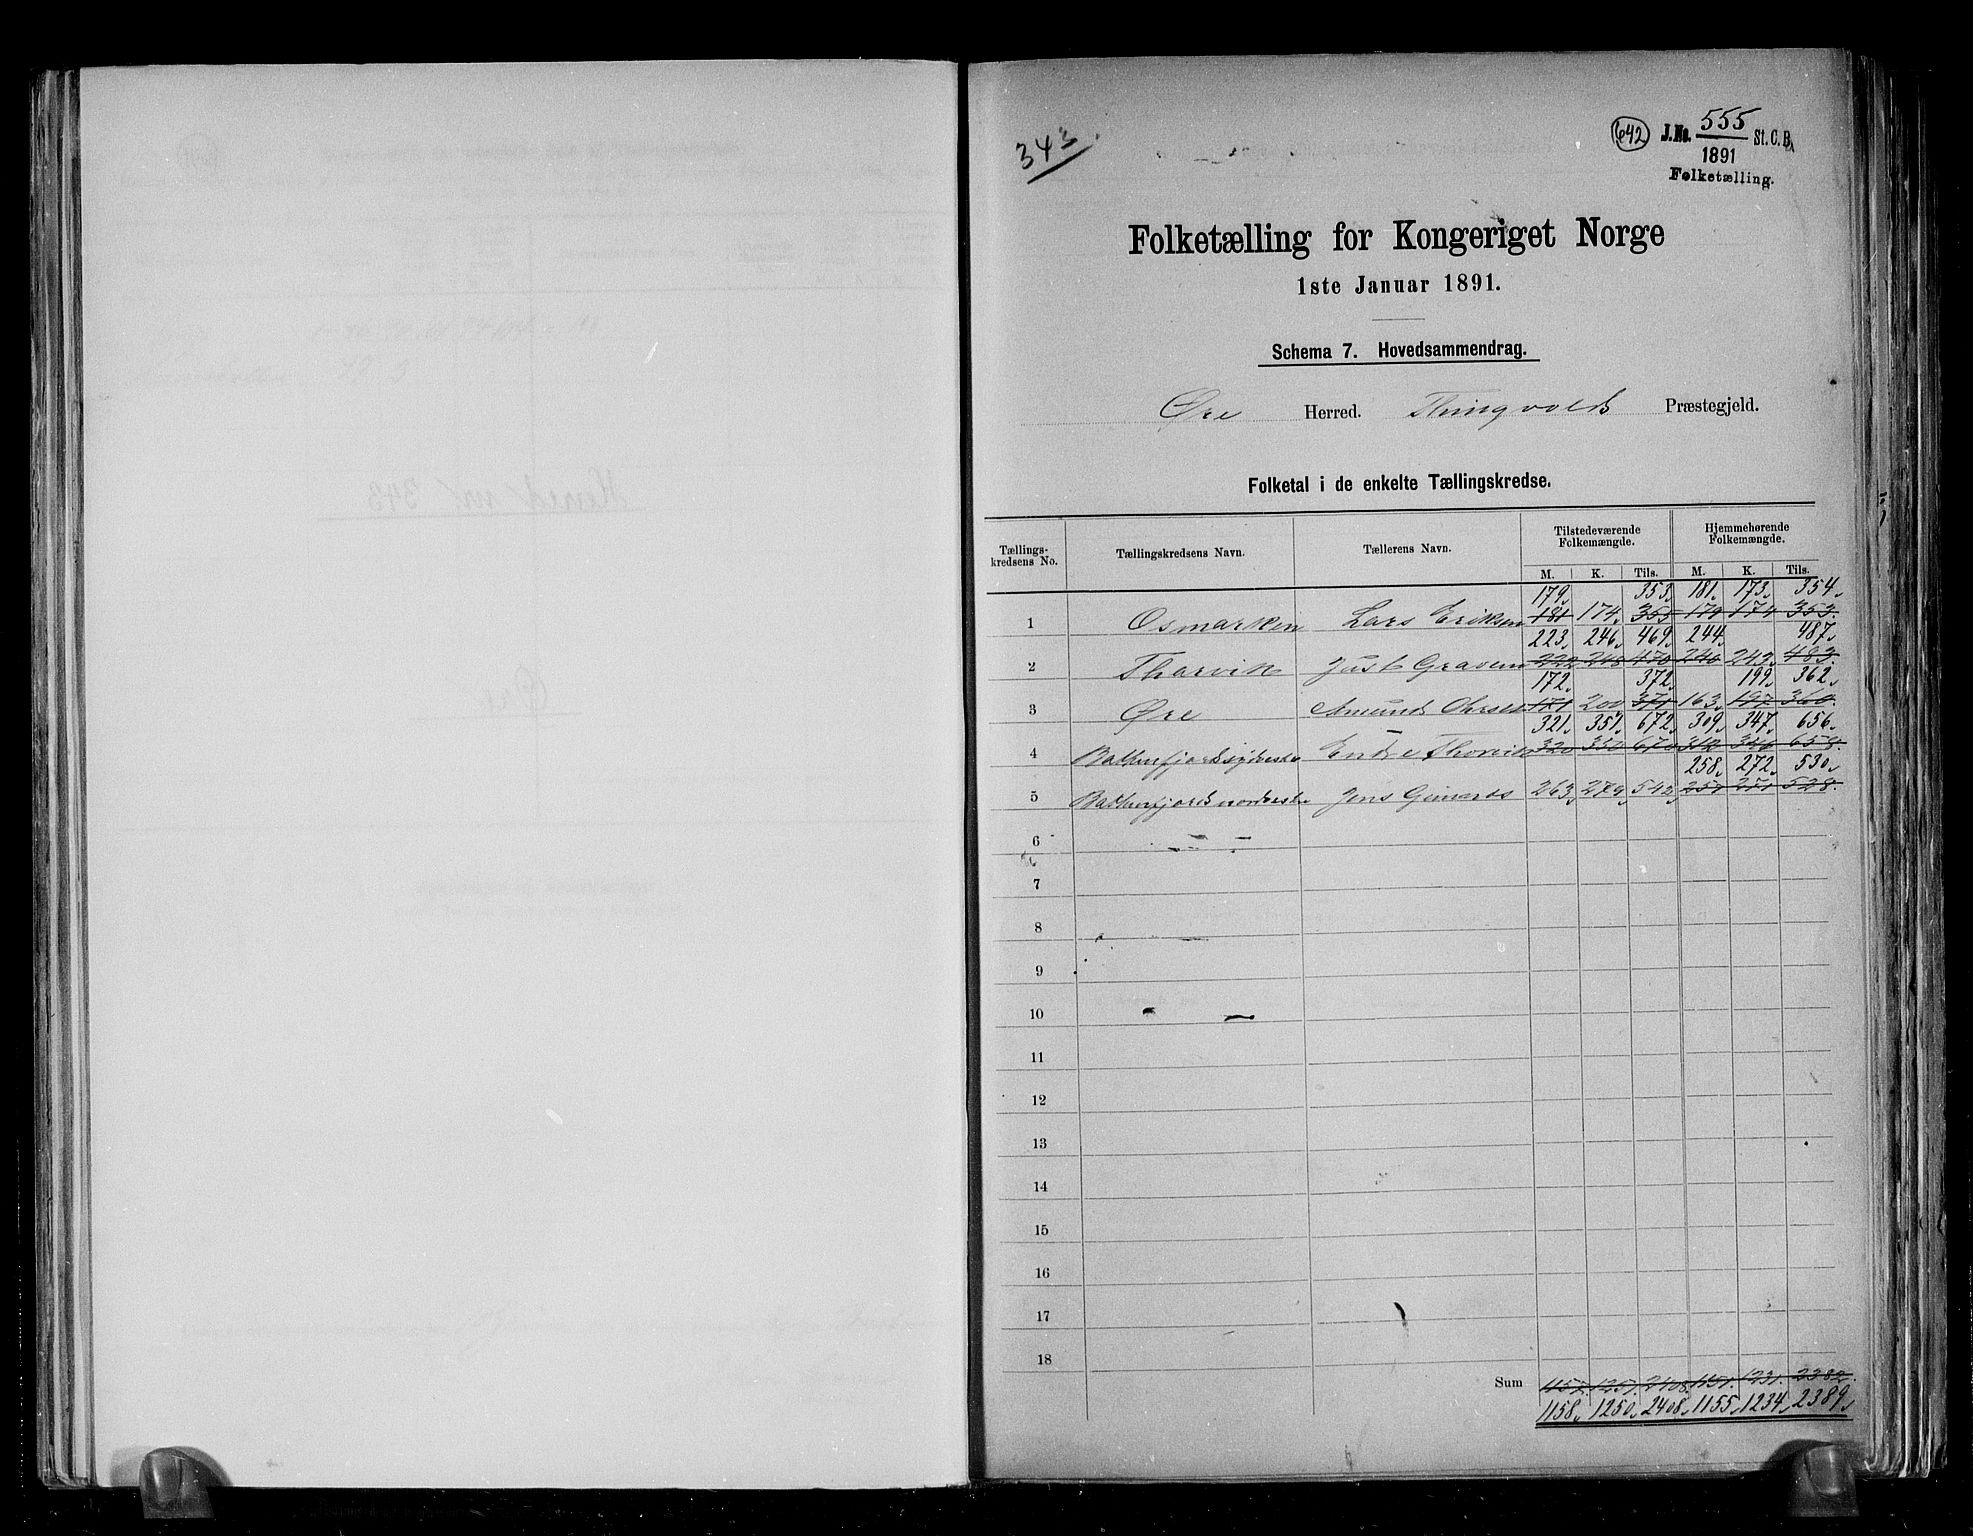 343
642 J.No. 555 St.C.B.
1891
Folketælling.
Folketælling for Kongeriget Norge
1ste Januar 1891.
Schema 7. Hovedsammendrag.
Øre Herred. Thingvolds Præstegjeld.
Folketal i de enkelte Tællingskredse.
Tællings-kredsens No. Tællingskredsens Navn. Tællerens Navn. Tilstedeværende Folkemængde. Hjemmehørende Folkemængde.
M. K. Tils. M. K. Tils.
179 353 181 173 354
1 Osmarken Lars Eriksen 181 174 355 179 174 353
223 246 469 244 487
2 Tharvik Just Graven 222 248 470 240 243 483
172 372 199 362
3 Øre Amund 171 200 371 163 197 360
321 351 672 309 347 656
4 Endre Thorvik 320 350 670 312 346 658
258 272 530
5 Jens Gimnæs 263 279 542 257 271 528
6
7
8
9
10
11
12
13
14
15
16
17
18
Sum 1157 1251 2408 1151 1231 2382
1158 1250 2408 1155 1234 2389
Herred nr. 343
Øre